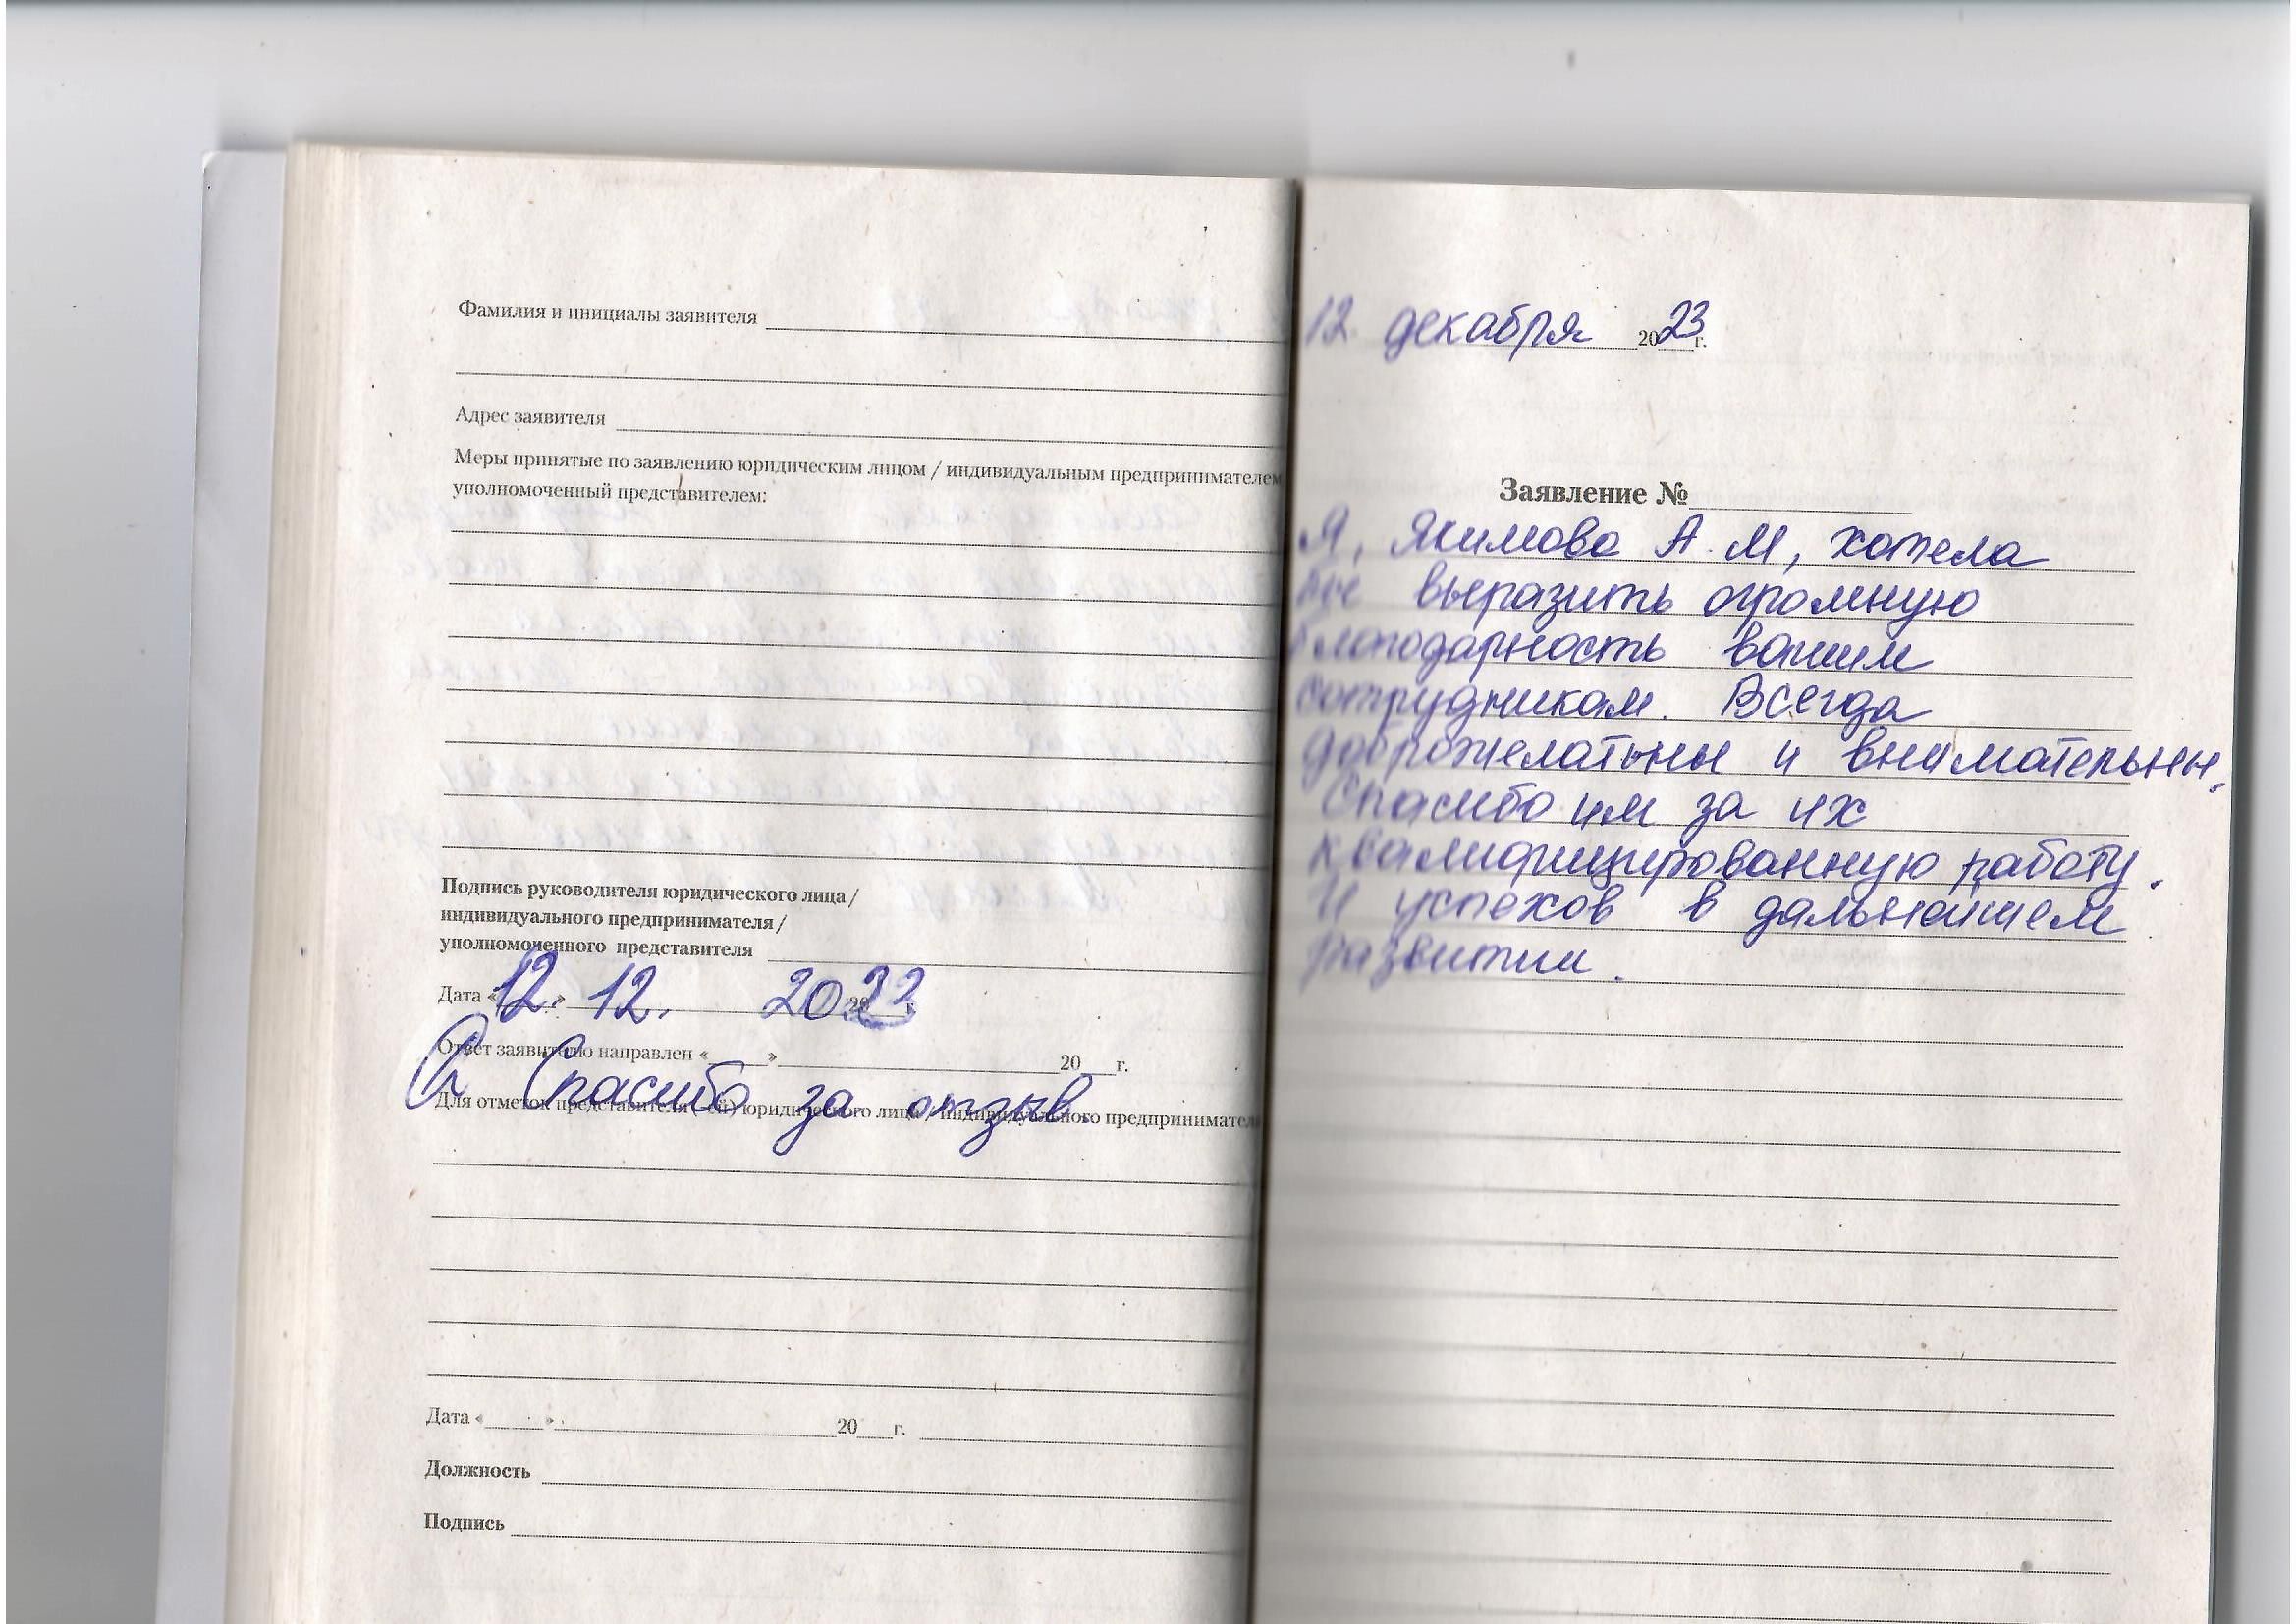 Фамилия и инициалы заявителя
Адрес заявителя
Меры принятые по заявлению юридическим лицом / индивидуальным предпринимателем
уполномоченный представителем:
Подпись руководителя юридического лица /
индивидуального предпринимателя /
уполномоченного представителя
Дата « 12. » 12. 2023 20 г.
Ответ заявителю направлен « » 20 г.
Спасибо за отзыв.
Для отметок представителя (ей) юридического лица / индивидуального предпринимател
Дата « » 20 г.
Должность
Подпись
12. декабря 2023 г.
Заявление №
Я, Якимова А.М, хотела
бы выразить огромную
благодарность вашим
сотрудникам. Всегда
доброжелательны и внимательны.
Спасибо им за их
квалифицированную работу.
И успехов в дальнейшем
развитии.